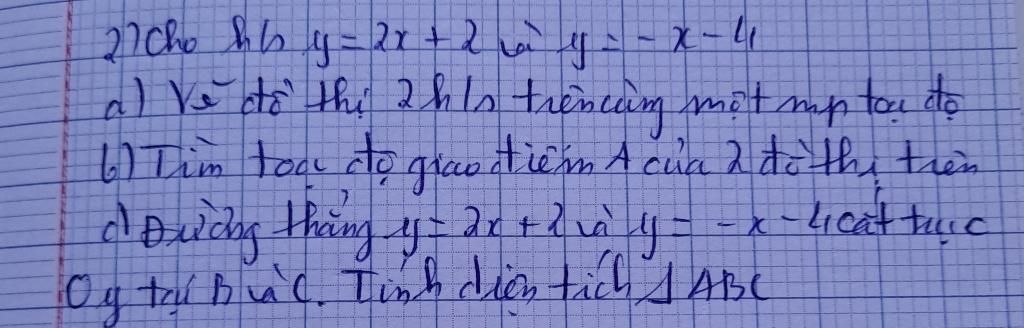 2) Cho h/s y = 2x + 2 và y = - x - 4
a) Vẽ đồ thị 2 h/s trên cùng một mp tọa độ
b) Tìm tọa độ giao điểm A của 2 đồ thị trên
c) Đường thẳng y = 2x + 2 và y = - x - 4 cắt trục
Oy tại B và C. Tính diện tích Δ ABC